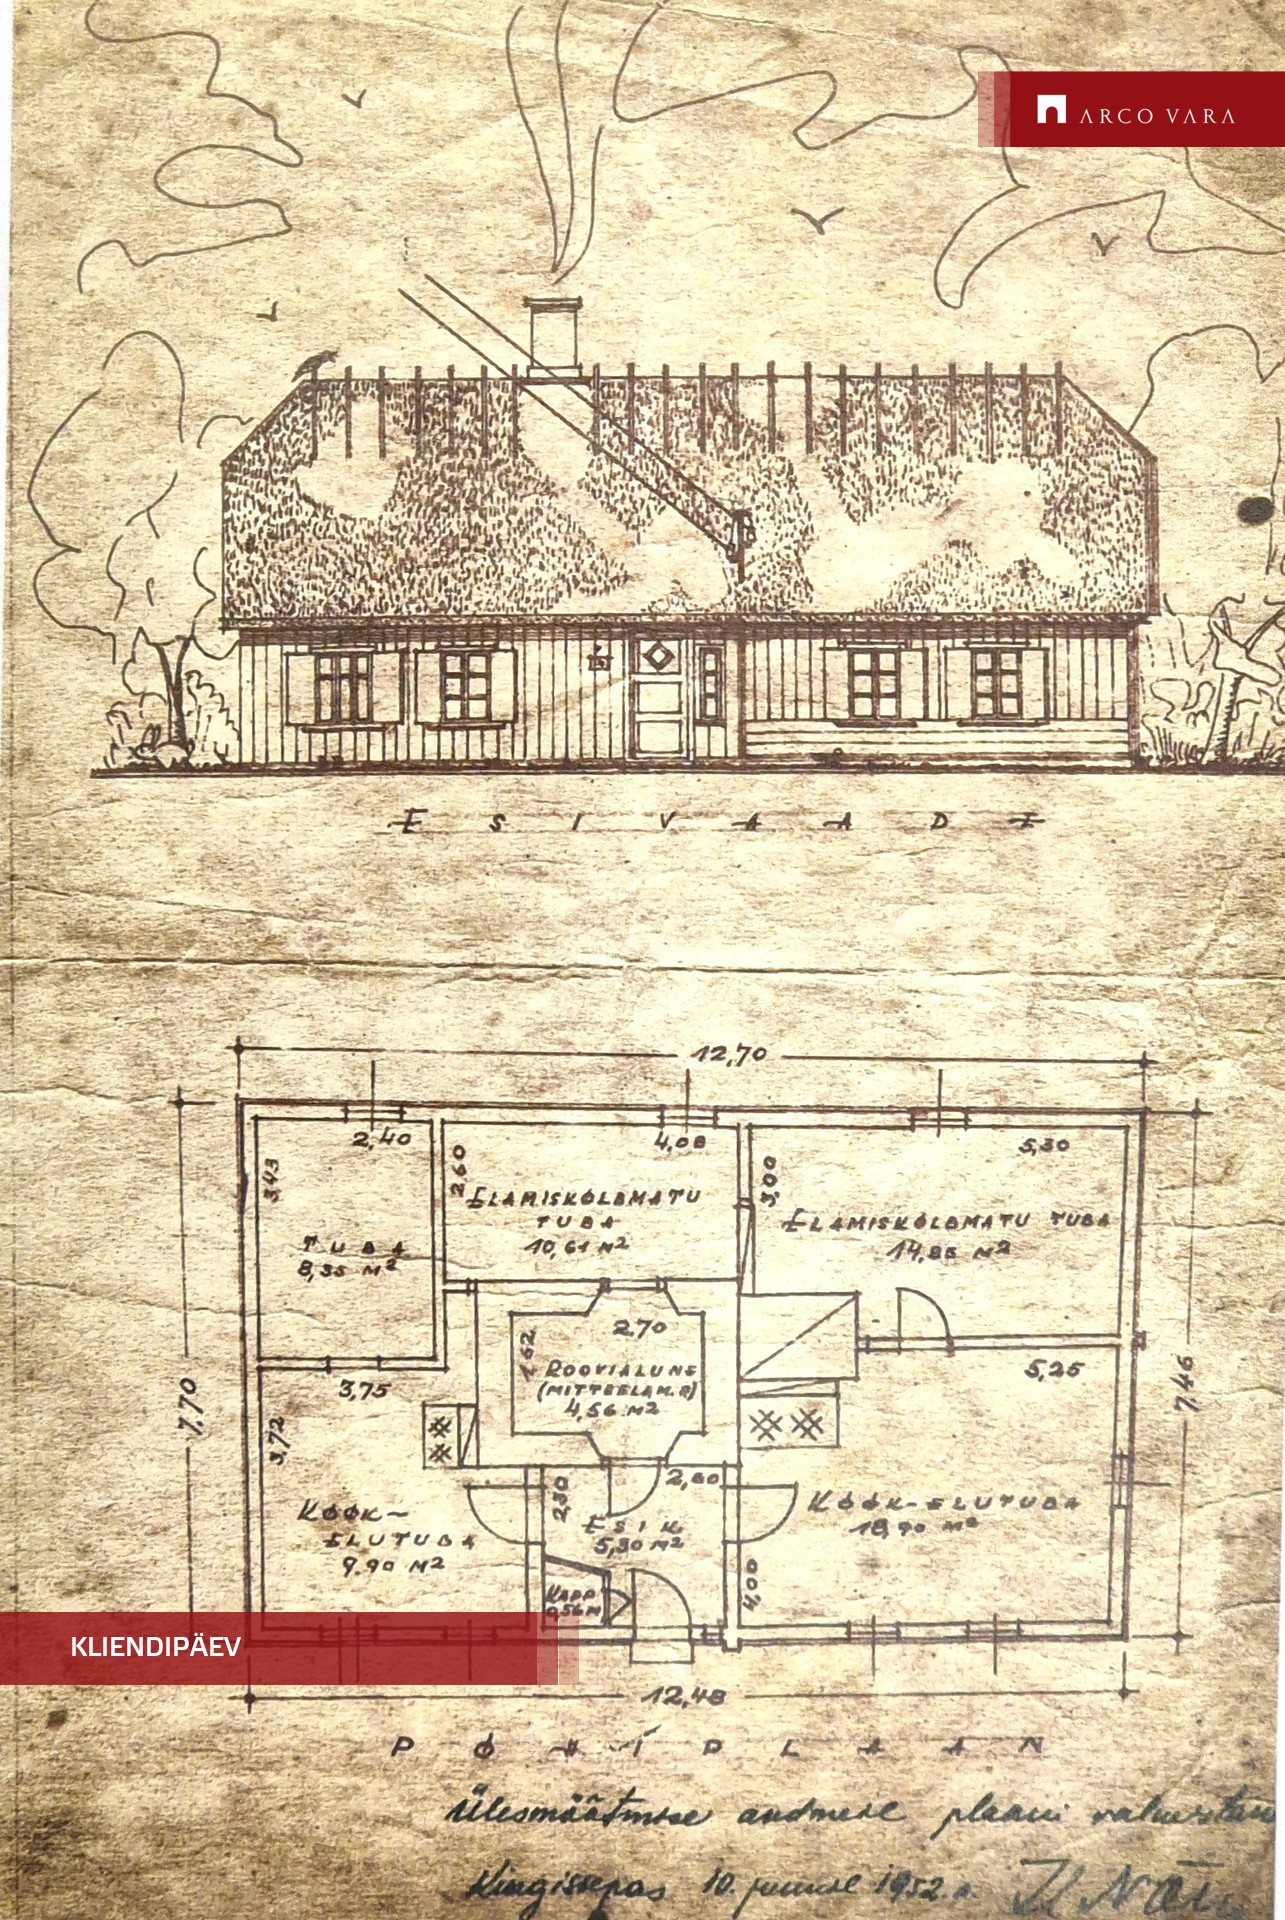 ARCO VARA
ESIVAADE
12,70
2,40
4,08
5,30
3,43
2,60
3,00
ELAMISKÕLBMATU
TUBA
10,61 M²
ELAMISKÕLBMATU TUBA
14,85 M²
TUBA
8,35 M²
2,70
1,62
ROOVIALUNE
(MITTEELAM.R)
4,56 M²
3,75
5,25
7,70
7,46
3,72
2,30
2,80
KÖÖK-
ELUTUBA
9.90 M²
ESIK
5,30 M²
KÖÖK-ELUTUBA
18,90 M²
4,00
KAPP
0,56 M
KLIENDIPÄEV
12,48
PÕHIPLAAN
Ülesmõõtmise andmeil plaani
Kingissepas 10. juunil 1952.a.